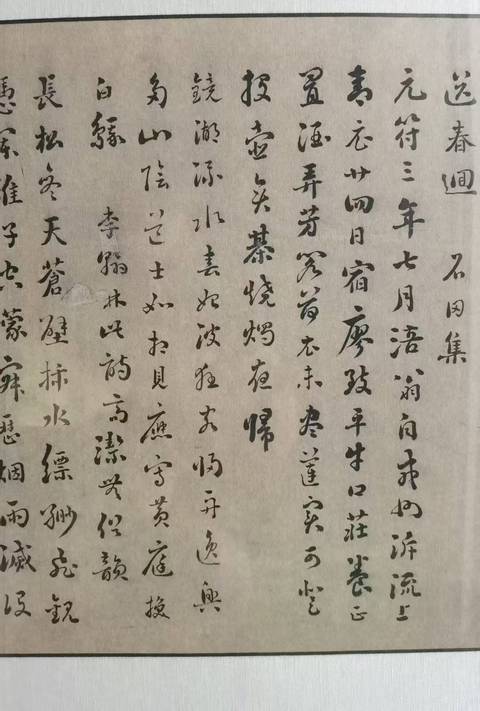 送春迴 石田集
元符三年七月涪翁自戎州泝流上
青衣廿四日宿廖致平牛口莊養正
置酒弄芳閣荷衣未盡蓮實可登
投壺奕棊燒燭夜歸
鏡湖流水春始波狂客歸舟逸興
多山陰道士如相見應寫黃庭換
白鵞 李翰林此詩高潔無俗韻
長松參天蒼壁插水縹緲飛觀
憑闌誰子空濛寂歷烟雨滅没